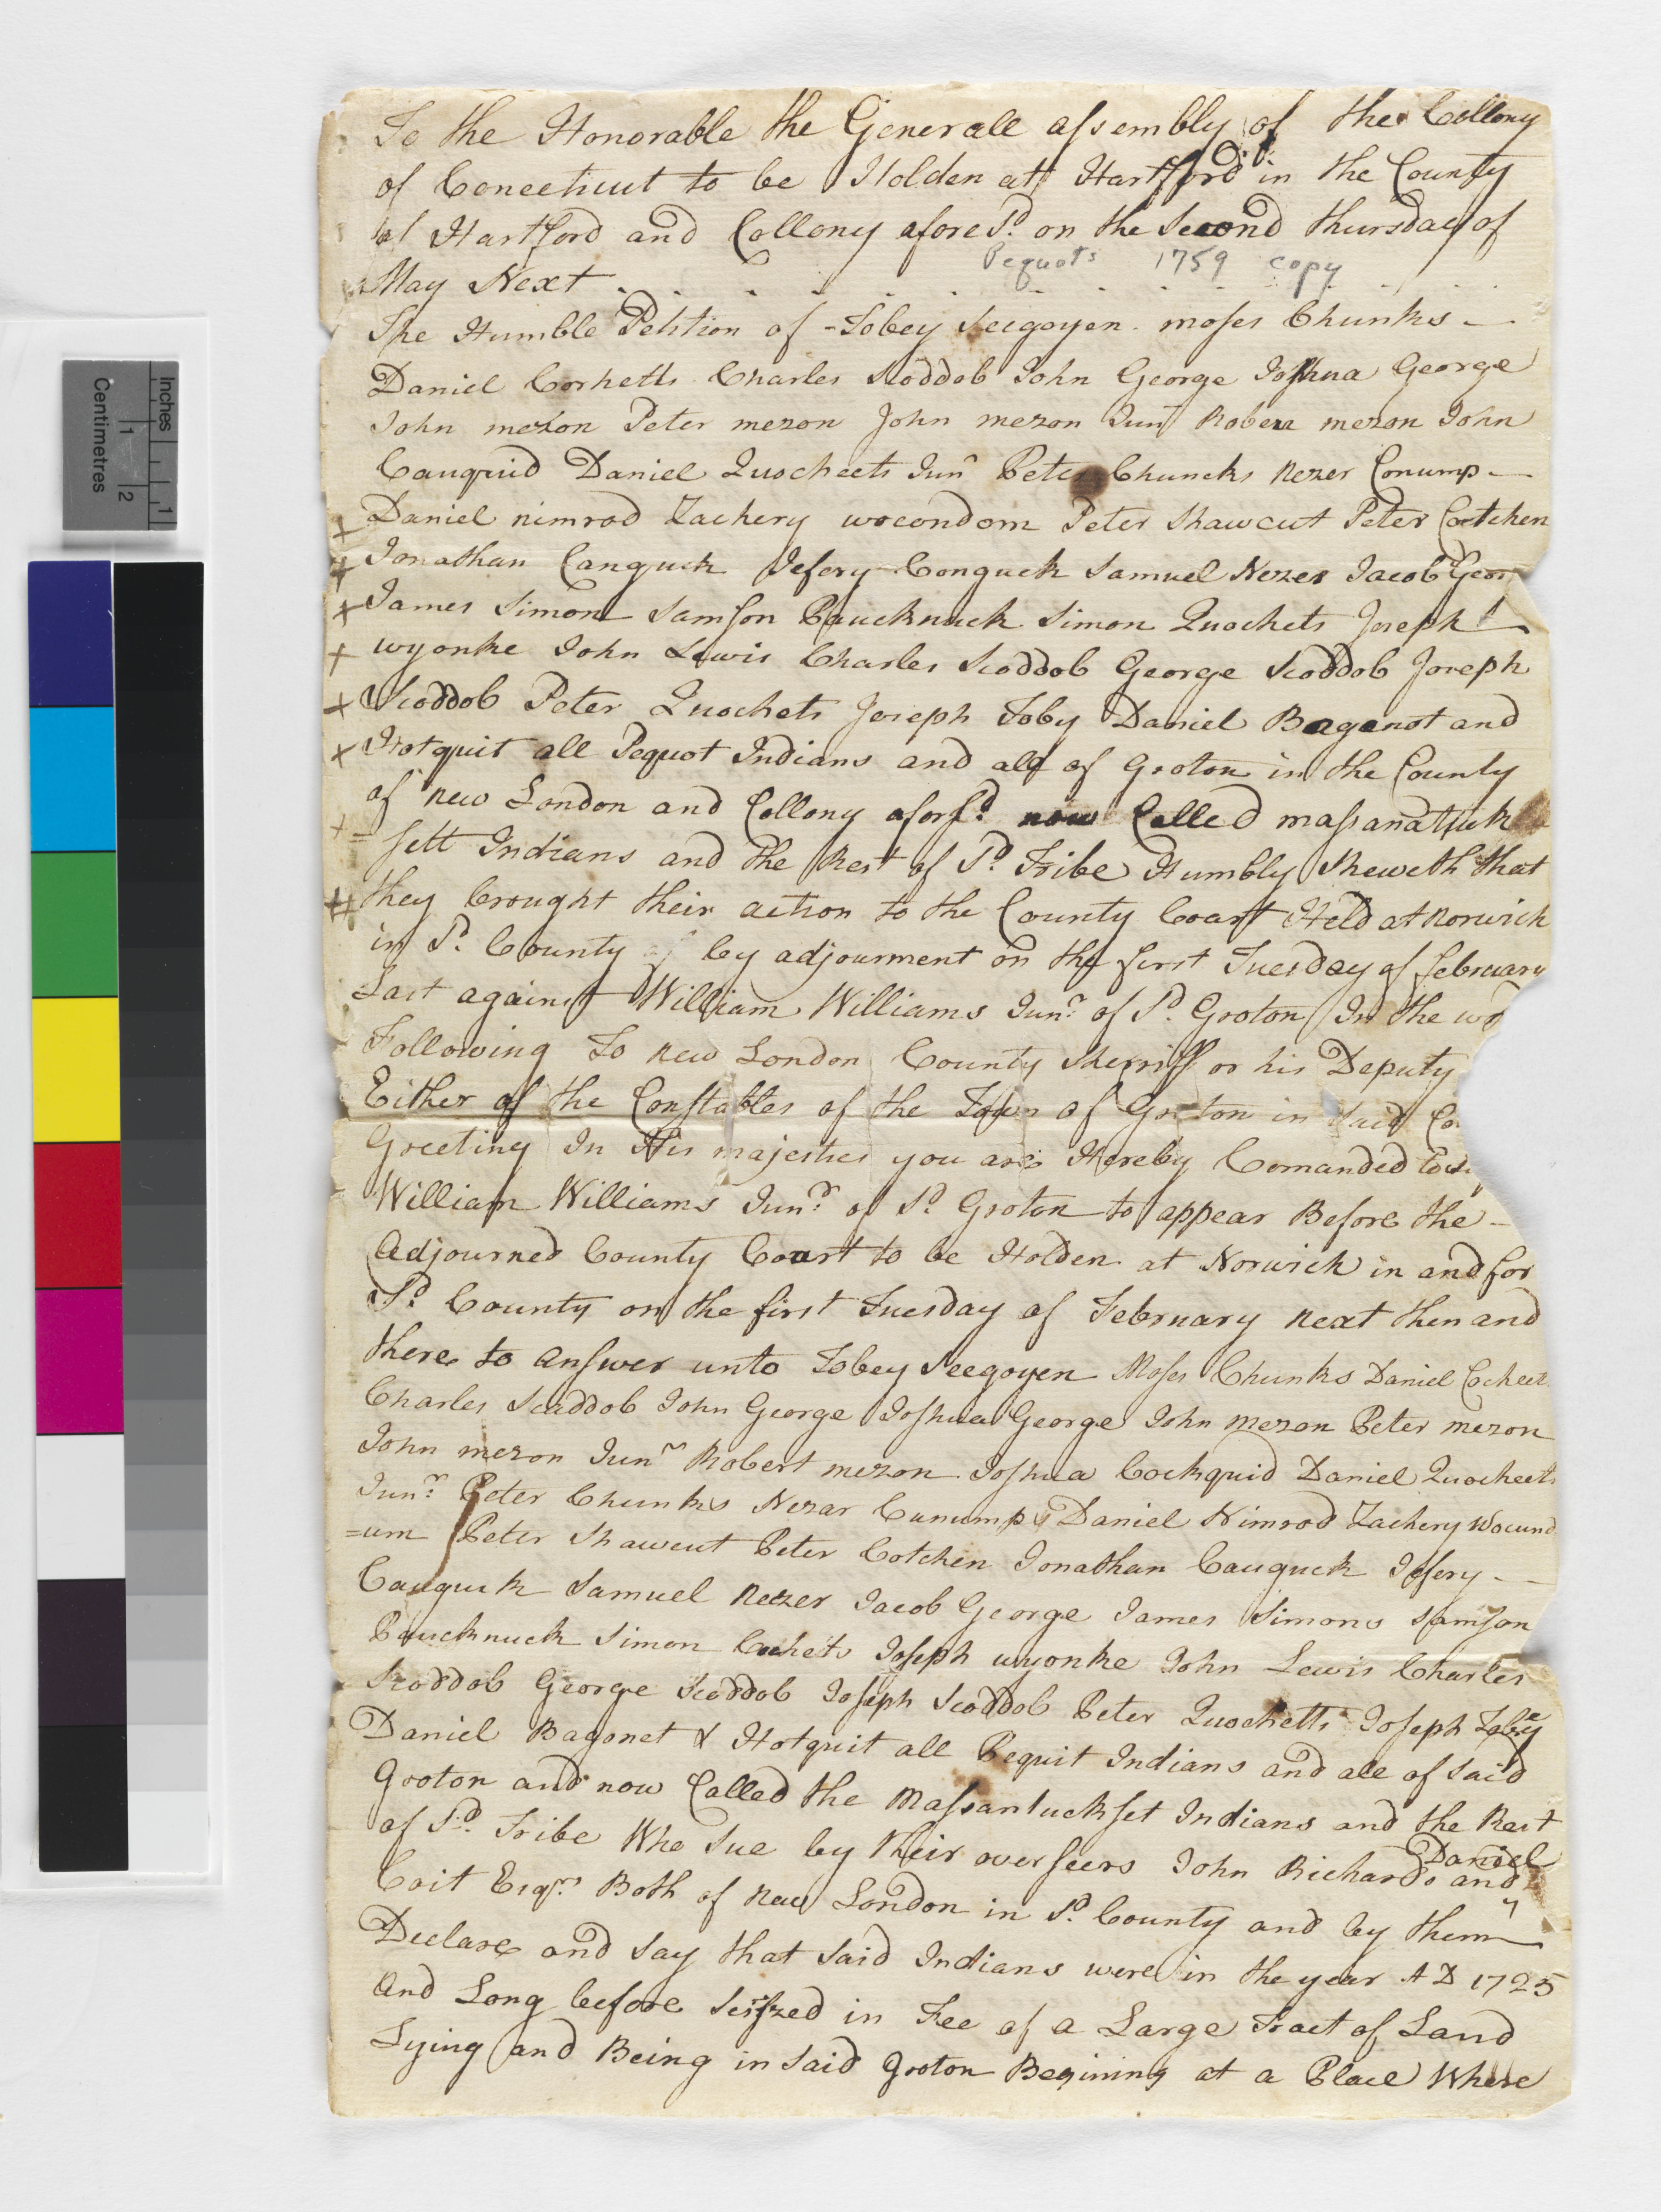 To the Honorable the Generall assembly of the Collony
of Conecticut to be Holden att Hartford in the County
of Hartford and Collony afores.d on the Second thursday of
Pequots 1759 copy
May Next
The Humble Petition of - Tobey Seegoyen moses Chunks -
Daniel Corhetts Charles Scoddob John George Joshua George
John mezon Peter mezon John mezon Junr Robert mezon John
Cauquid Daniel Quocheets Junr Peter Chuncks Nezer Conump -
Daniel nimrod Zachery wocondom Peter Shawcut Peter Cotchen
Jonathan Canquck Jefery Conguck Samuel Nezer Jacob Geor
James Simon Samson Paucknuck Simon Quochets Joseph
wyonke John Lewis Charles Scoddob George Scoddob Joseph
Scoddob Peter Quochets Joseph Toby Daniel Bagonot and
Hotquit all Pequot Indians and all of Groton in the County
of new London and Collony afors.d now Called massanattuck
= sett Indians and the Rest of S.d Tribe Humbly Sheweth that
they brought their action to the County Court Held at Norwich
in S.d County by adjourment on the first Tuesday of february
Last against William Williams Jun.r of S.d Groton In the wo
Following To new London County Sherriff or his Deputy
Either of the Constables of the Town of Groton in Said Co
Greeting In His majesties you are Hereby Comanded
William Williams Jun.r of S.d Groton to appear Before the -
Adjourned County Court to be Holden at Norwich in and for
S.d County on the first Tuesday of February next then and
there to answer unto Tobey Seegoyen Moses Chunks Daniel Cocheet
Charles Scaddob John George Joshua George John mezon Peter mezon
John mezon Junr Robert mezon Joshua Cockquid Daniel Quocheets
Jun.r Peter Chunks Nezar Cunump Daniel Nimrod Zachery Wocund
=um Peter Shawcut Peter Cotchen Jonathan Cauquck Jefery -
Cauquck Samuel Nezer Jacob George James Simons Samson
Paucknuck Simon Cochets Joseph wyonke John Lewis Charles
Scoddob George Scoddob Joseph Scoddob Peter Quochetts Joseph Tobey
Daniel Bagonet & Hotquit all Pequit Indians and all of Said
Groton and now Called the Massantuckset Indians and the Rest
of S.d Tribe Who Sue by their overseers John Richards and Daniel
Coit Esqrs Both of New London in S.d County and by them
Declare and Say that Said Indians were in the year A D 1725
and Long before Seiszed in Fee of a Large Tract of Land
Lying and Being in Said Groton Begining at a Place Where